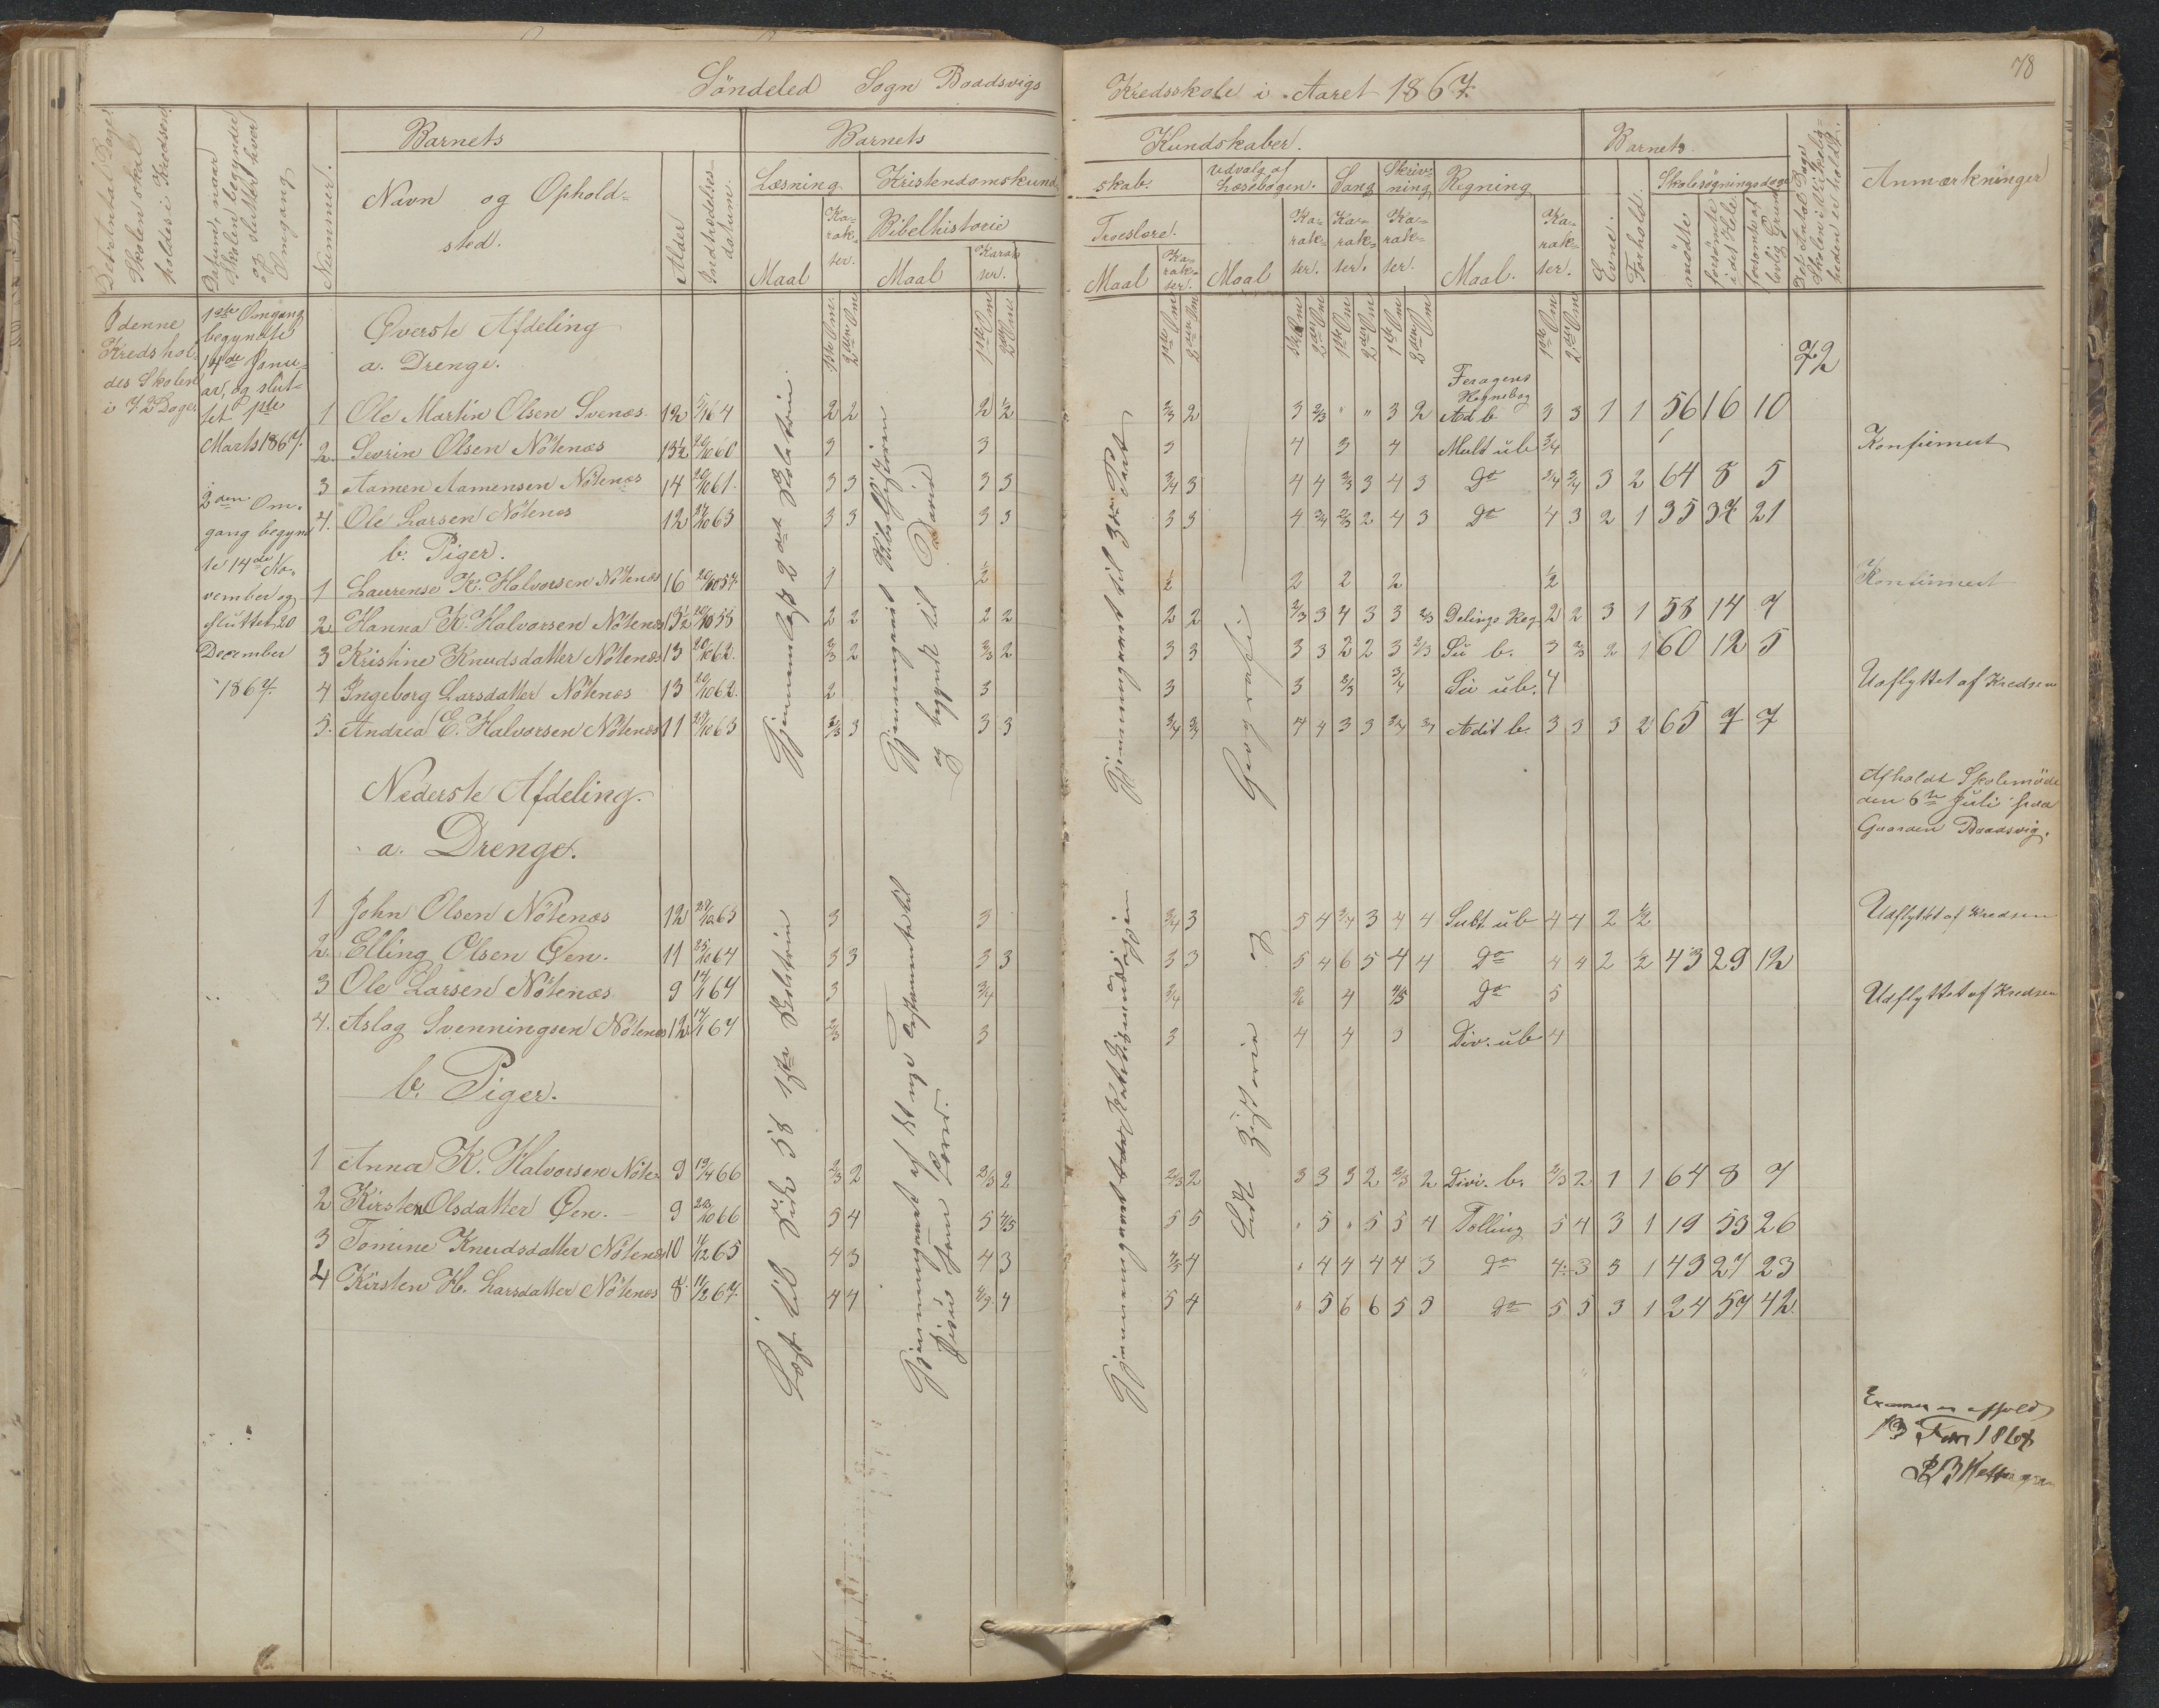 78
Söndeled Sogn Baadsvigs Kredsskole i Aaret 1867.
Det Antal Dage Skolen skal holdes i Kredsen
Datum, naar Skolen begynder og slutter hver Omgang
Nummer.
Barnets
Navn og Ophold=
sted.
Alder
Indtrædelses=
datum.
Barnets Kundskaber.
Læsning
Maal
Ka=
rak=
ter.
Kristendomskund=
skab.
Bibelhistorie
Maal
Karak
ter.
Troeslære.
Maal
Ka=
rak=
ter.
Udvalg af
Læsebogen.
Maal
Ka=
rak=
ter.
Sang
Ka=
rak=
ter.
Skriv=
ning
Ka=
rak=
ter.
Regning
Maal.
Ka=
rak=
ter.
Barnets
Evne.
Forhold.
Skolesøgningsdage
mödte
forsömte
i det Hele
forsömte af
lovlig Grund
Det Antal Dage
Skolen i Virkelig=
heden er holdt.
Anmærkninger
I denne
Kreds hol
des Skolen
i 72 Dage
1ste Omgang
begyndte
14de Janu=
ar, og slut=
tet 1ste
Marts 1867.
2den Om=
gang begynd
te 14de No=
vember og
sluttet 20
December
1867.
Överste Afdeling
a. Drenge.
72
1 Ole Martin Olsen Svenæs. 12 5/1 64 2 2 2 1/2 2/3 2 3 2/3 " " 3 2 Ad b 3 3 1 1 56 16 10
2. Sevrin Olsen Nötenæs 13½ 20/10 60 3 3 3 4 3 4 Mult ub 3/4 Konfirmert
3 Aamen Aamensen Nötenæs 14 20/10 61. 3 3 3 3 3/4 3 4 4 2/3 3 4 3 Do 3/4 3/4 3 2 64 8 5
4. Ole Larsen Nötenes 12 27/10 63 3 3 3 3 3 3 4 3/4 2/3 2 4 3 Do 4 3 2 1 35 37 21
b. Piger.
1 Laurense K. Halvorsen Nötenæs 16 20/10 57. 1 1/2 1/2 2 2 2 1/2 Konfirmert
2 Hanna K. Halvorsen Nötenæs 13½ 20/10 58 2 2 2 2 2 2 2/3 3 4 3 3 2/3 Delings Reg 2 2 3 1 58 14 7
3 Kristine Knudsdatter Nötenæs 13 20/10 62. 2/3 2 2/3 2 3 3 3 3 2 2 3 2/3 Su b. 3 2/3 2 1 60 12 5
4 Ingeborg Larsdatter Nötenæs 13 20/10 62. 2 3 3 3 2/3 3/4 Su ub. 4 Udflyttet af Kredsen
5. Andrea E. Halvorsen Nötenæs 11 27/10 63 2/3 3 3 3 3/4 3/4 4 4 3 3 3/4 3/4 Adit b. 3 3 3 2 65 7 7
Gjennemlæst 2det Skoletrin.
Gjennemgaaet Bibelhistorien
og begyndt til David
Geografi og
Historie
Afholdt Skolemöde
den 6te Juli paa
Gaarden Baadsvig.
Nederste Afdeling.
a. Drenge.
1 John Olsen Nötenæs 12 27/10 63 3 3 3/4 3 5 4 3/4 3 4 4 Subt. ub 4 4 2 1/2 Udflyttet af Kredsen
2. Elling Olsen Öen. 11 25/10 64 3 3 3 3 3 3 5 4 6 5 4 4 Do 4 4 2 1/2 43 29 12
3 Ole Larsen Nötenæs 9 14/1 67 3 3/4 3/4 5/6 4 4/5 Do 5 Udflyttet af Kredsen
4. Aslag Svenningsen Nötenæs 12 14/1 67 2/3 3 3 4 4 3 Div. ub 4
b. Piger.
1 Anna K. Halvorsen Nöte= 9 19/4 66 2/3 2 2/3 2 2/3 2 3 3 3 2 2/3 2 Divi. b. 2/3 2 1 1 64 8 7
2 Kirsten Olsdatter Öen. 9 23/10 66 5 4 5 4/5 5 5 " 5 " 5 5 4 Tælling 5 4 3 1 19 53 26
3 Tomine Knudsdatter Nötenæs 10 11/12 65 4 3 4 3 4/3 4 " 4 4 4 4 3 Do 4 3 3 1 43 27 23
4 Kirsten H. Larsdatter Nötenæs 8 11/2 67. 4 4 4/3 4 5 4 " 5 6 6 5 5 Do 5 5 3 1 24 57 42
Læst til Side 58 1ste Skoletrin
Gjennemgaaet af det nye Testamente til
Examen er afholdt